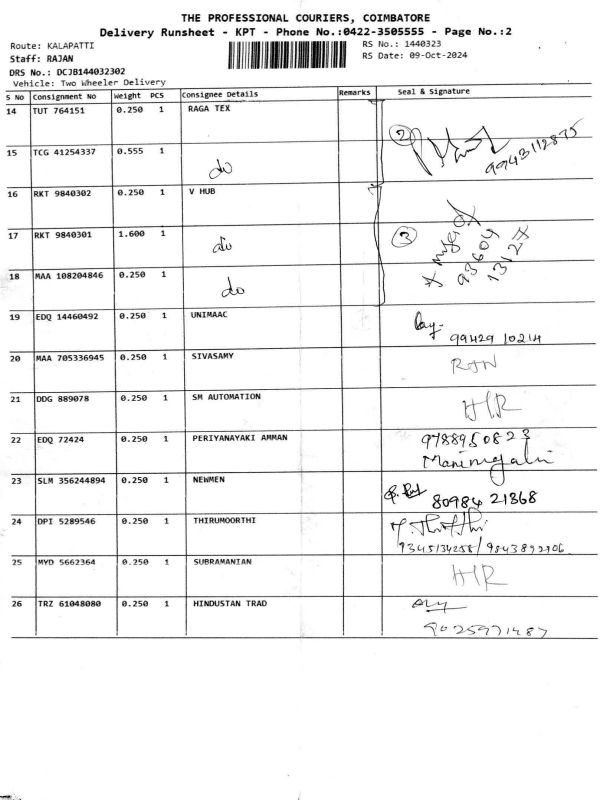 THE PROFESSIONAL COURIERS, COIMBATORE
Delivery Runsheet - KPT - Phone No.:0422-3505555 - Page No.:2
Route: KALAPATTI RS No.: 1440323
Staff: RAJAN RS Date: 09-Oct-2024
DRS No.: DCJB144032302
Vehicle: Two Wheeler Delivery
S No Consignment No Weight PCS Consignee Details Remarks Seal & Signature
14 TUT 764151 0.250 1 RAGA TEX
2 9943112875
15 TCG 41254337 0.555 1 do
16 RKT 9840302 0.250 1 V HUB
17 RKT 9840301 1.600 1 do 3
93604
13127
18 MAA 108204846 0.250 1 do
19 EDQ 14460492 0.250 1 UNIMAAC
99429 10214
20 MAA 705336945 0.250 1 SIVASAMY
RTN
21 DDG 889078 0.250 1 SM AUTOMATION
H/R
22 EDQ 72424 0.250 1 PERIYANAYAKI AMMAN 9788950823
23 SLM 356244894 0.250 1 NEWMEN
80984 21868
24 DPI 5289546 0.250 1 THIRUMOORTHI
9345134258/9843892906
25 MYD 5662364 0.250 1 SUBRAMANIAN
H/R
26 TRZ 61048080 0.250 1 HINDUSTAN TRAD
9025971487